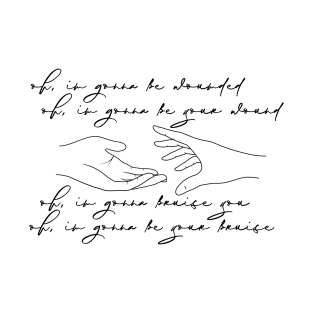 oh, im gonna be wounded
oh, im gonna be your wound
oh, im gonna bruise you
oh, im gonna be your bruise